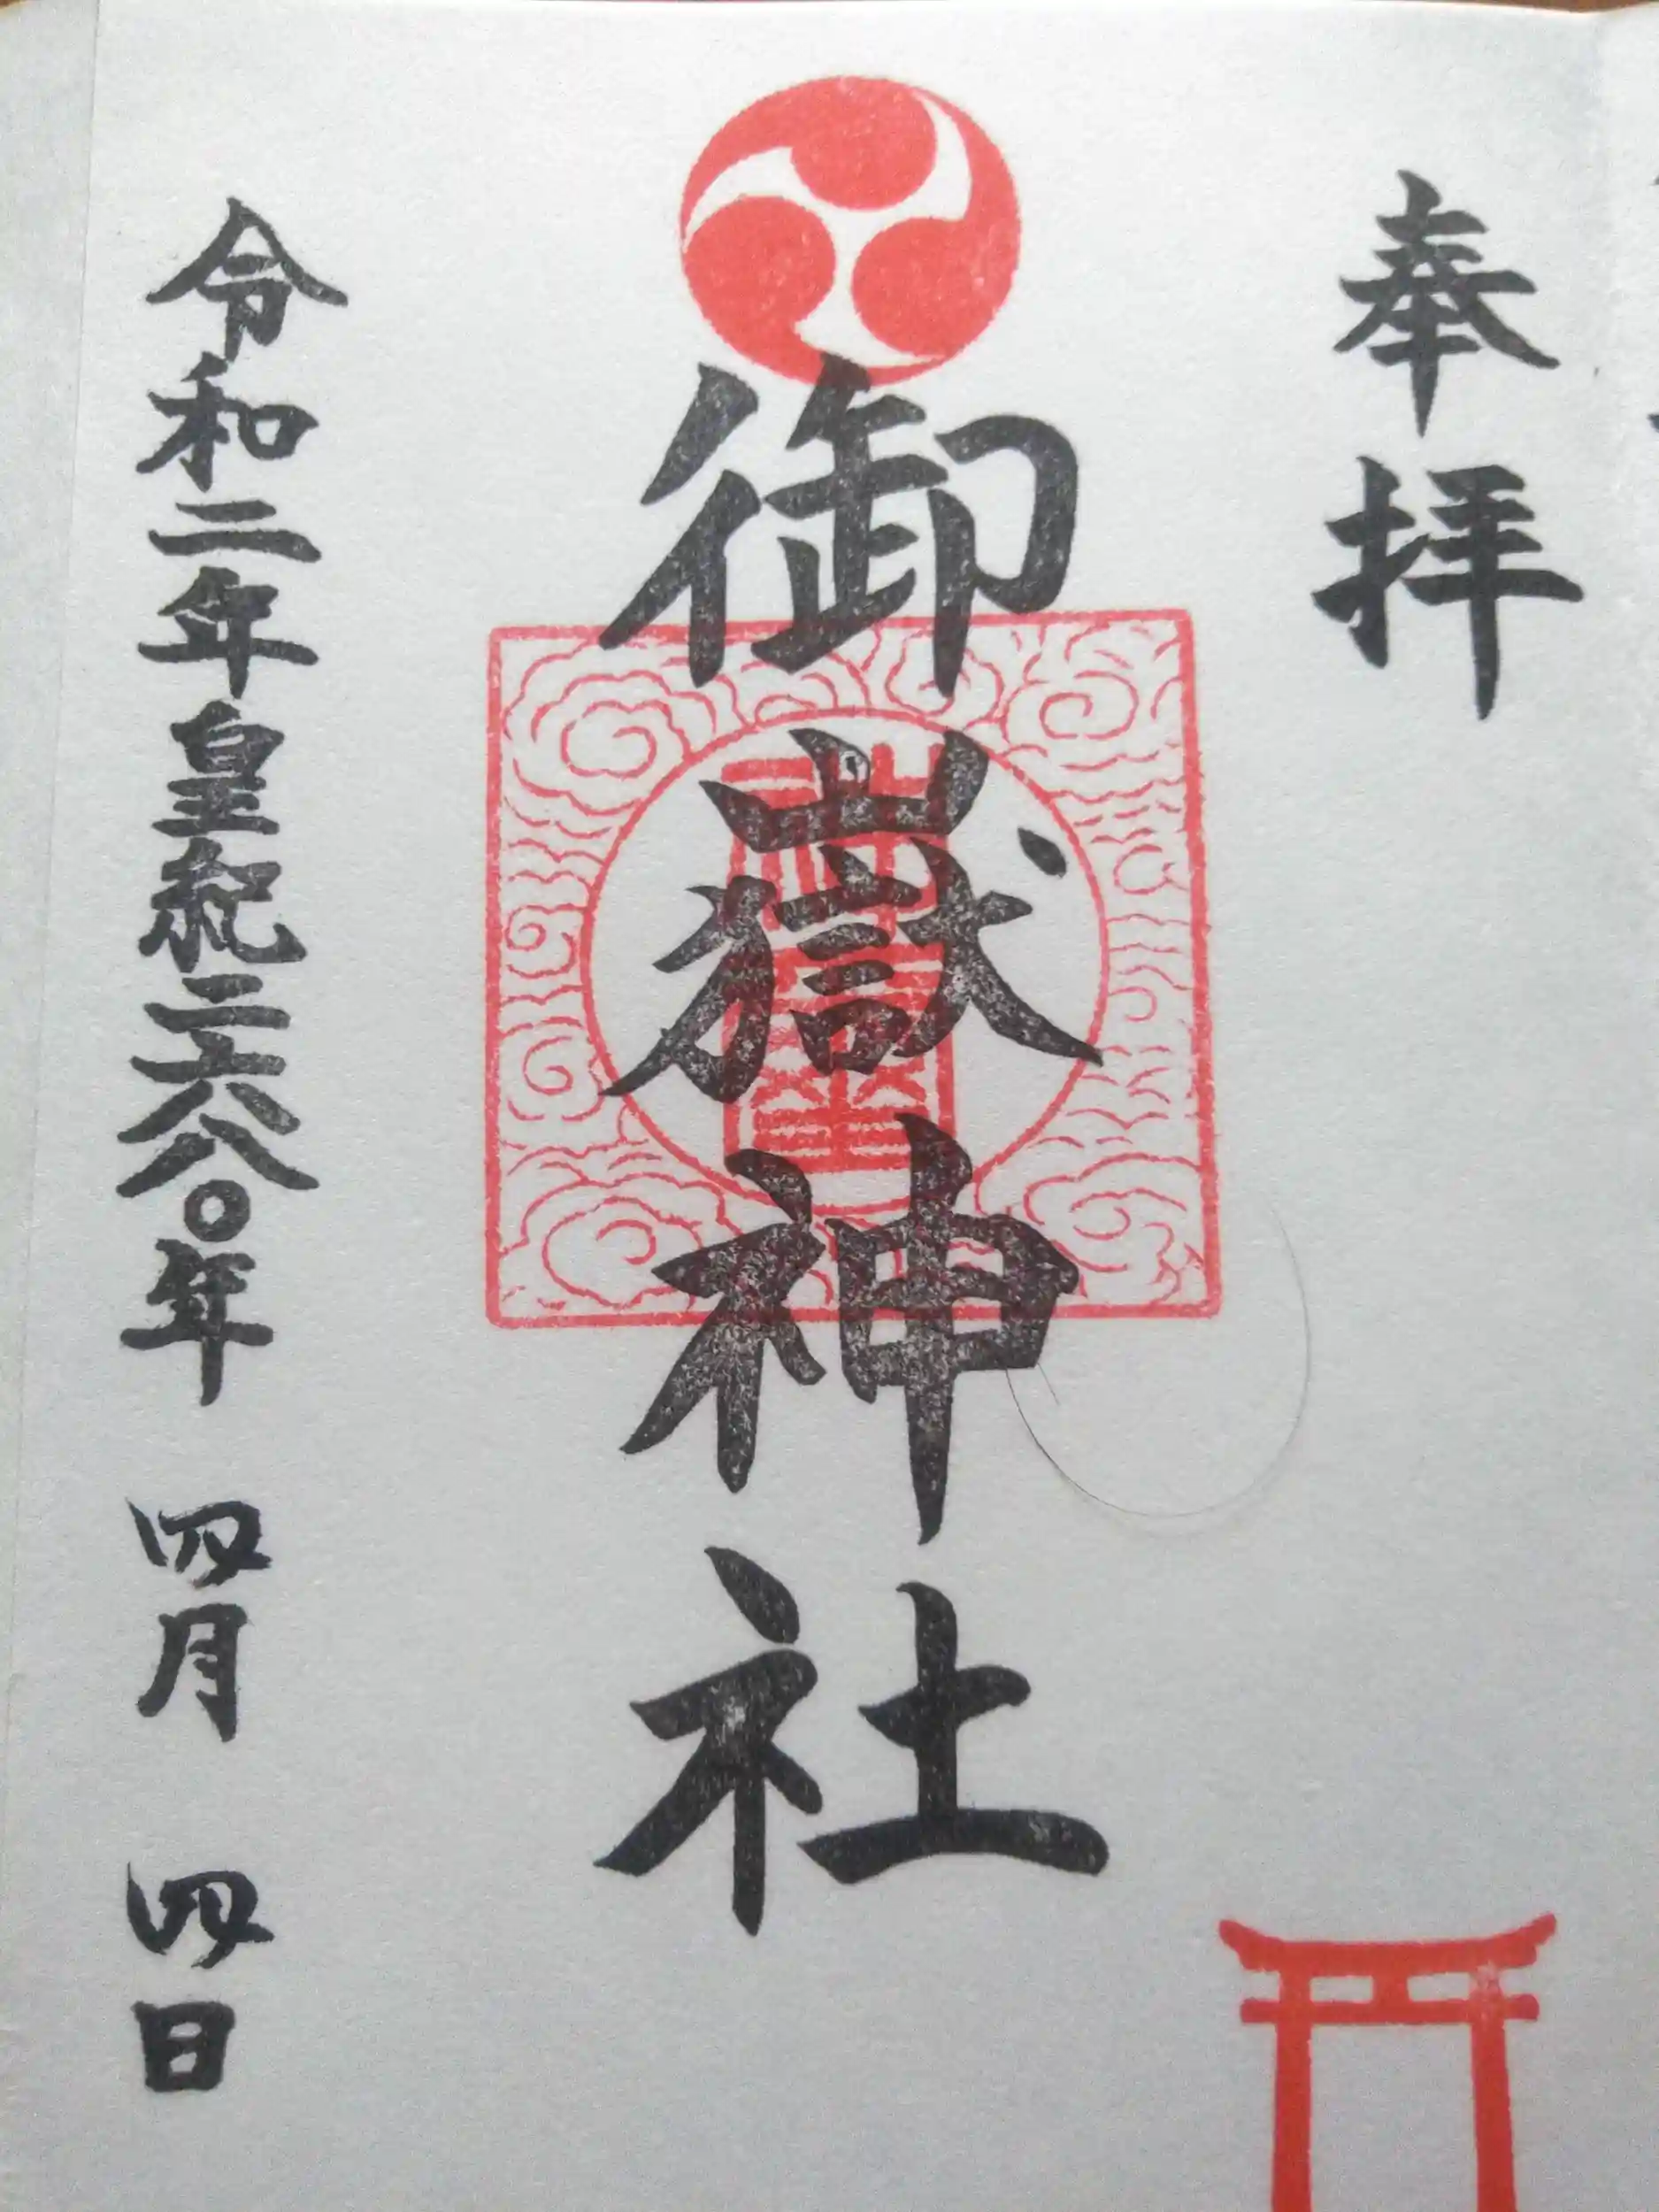 奉拝
御嶽神社
令和二年皇紀二六八〇年 四月 四日